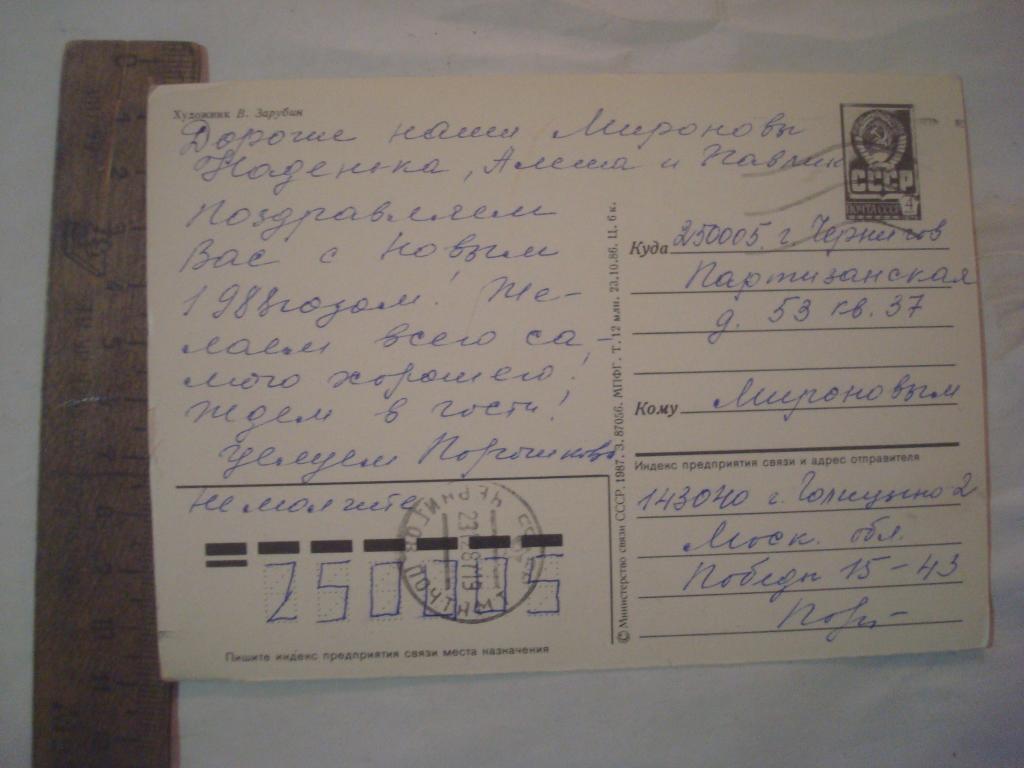 Художник В. Зарубин
Дорогие наши Мироновы
Наденька, Алеша и Павлик
Поздравляем
Вас с Новым
1988годом! Же-
лаем всего са-
мого хорошего!
Ждем в гости!
Целуем Порошковы
Не молчите
СССР
4
Куда 250005 г. Чернигов
Партизанская
д. 53 кв. 37
Кому Мироновым
Индекс предприятия связи и адрес отправителя
143040 г. Голицыно 2
Моск. обл.
Победы 15-43
Пор-
© Министерство связи СССР. 1987. З. 87056. МПФГ. Т. 12 млн. 23.10.86. Ц. 6 к.
ЧЕРНИГОВ
250005
Пишите индекс предприятия связи места назначения